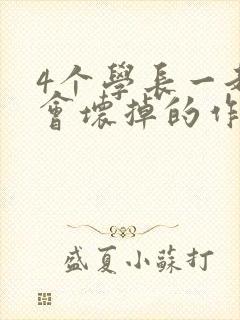 4个學長一
會壞掉的作
盛夏小蘇打